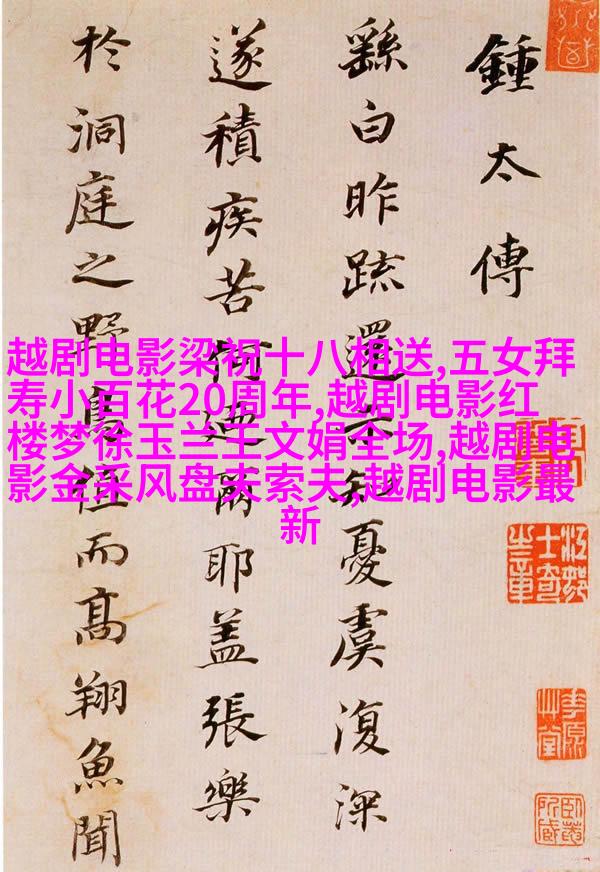 鍾太傅
繇白昨疏還示知憂虞復深
遂積疾苦何迺爾耶蓋張樂
於洞庭之野鳥值而高翔魚聞
越剧电影梁祝十八相送,五女拜
寿小百花20周年,越剧电影红
楼梦徐玉兰王文娟全场,越剧电
影金采风盘夫索夫,越剧电影最
新